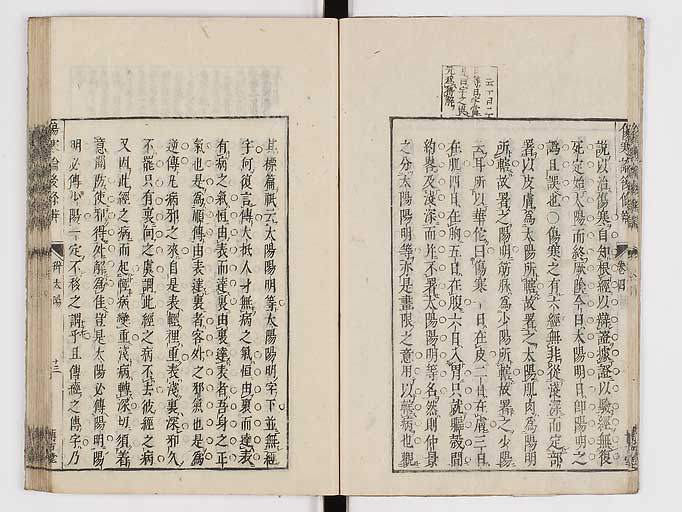 云一日二
說以治傷寒自知根經以辨證據證以驗經無復
死定始太陽而終厥陰今日太陽明日即陽明之
爲且誤也○傷寒之有六經無非從淺深而定部
署以皮膚爲太陽所轄故署之太陽肌肉爲陽明
所轄故署之陽明筋脉爲少陽所轄故署之少陽
云耳所以華佗曰傷寒一日在皮二日在膚三日
在肌四日在胸五日在腹六日入胃只就軀殼間
約畧及淺深而并不署太陽陽明等名然則仲景
之分太陽陽明等亦是畫限之意用以轄病也觀
其標篇祗云太陽陽明等太陽陽明字下並無經
字何復言傳大抵人才無病之氣恒由裏而達表
有病之氣恒由表而達裏由裏達表者吾身之正
氣也是爲順傳由表達裏者客外之邪氣也是爲
逆傳凡病邪之來自是表輕裡重表淺裏深邪久
不罷只有裏向之虞謂此經之病不去彼經之病
又因此經之病而起輕病變重淺病轉深切須着
意關防使邪得外解爲佳豈是太陽必傳陽明陽
明必傳少陽一定不移之謂乎且傳經之傳字乃
傷寒論後條辨
辨太陽